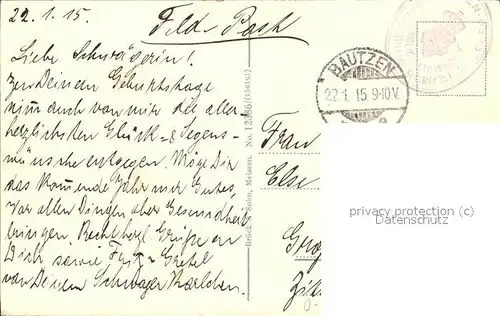 22.1.15.
Feld-Post
Liebe Schwägerin!
Zu Deinem Geburtstage
nimm auch von mir die aller
herzlichsten Glück- & Segens-
wünsche entgegen. Möge Dir
das kommende Jahr nur Gutes,
vor allen Dingen aber Gesundheit
bringen. Recht herzl. Grüße an
Dich sowie Fritz & Gretel
von Deinem Schwager Karlchen.
BAUTZEN
22.1.15 9-10V.
Brück & Sohn, Meissen. No. 12886
Frau
Else
privacy protection (c)
Datenschutz